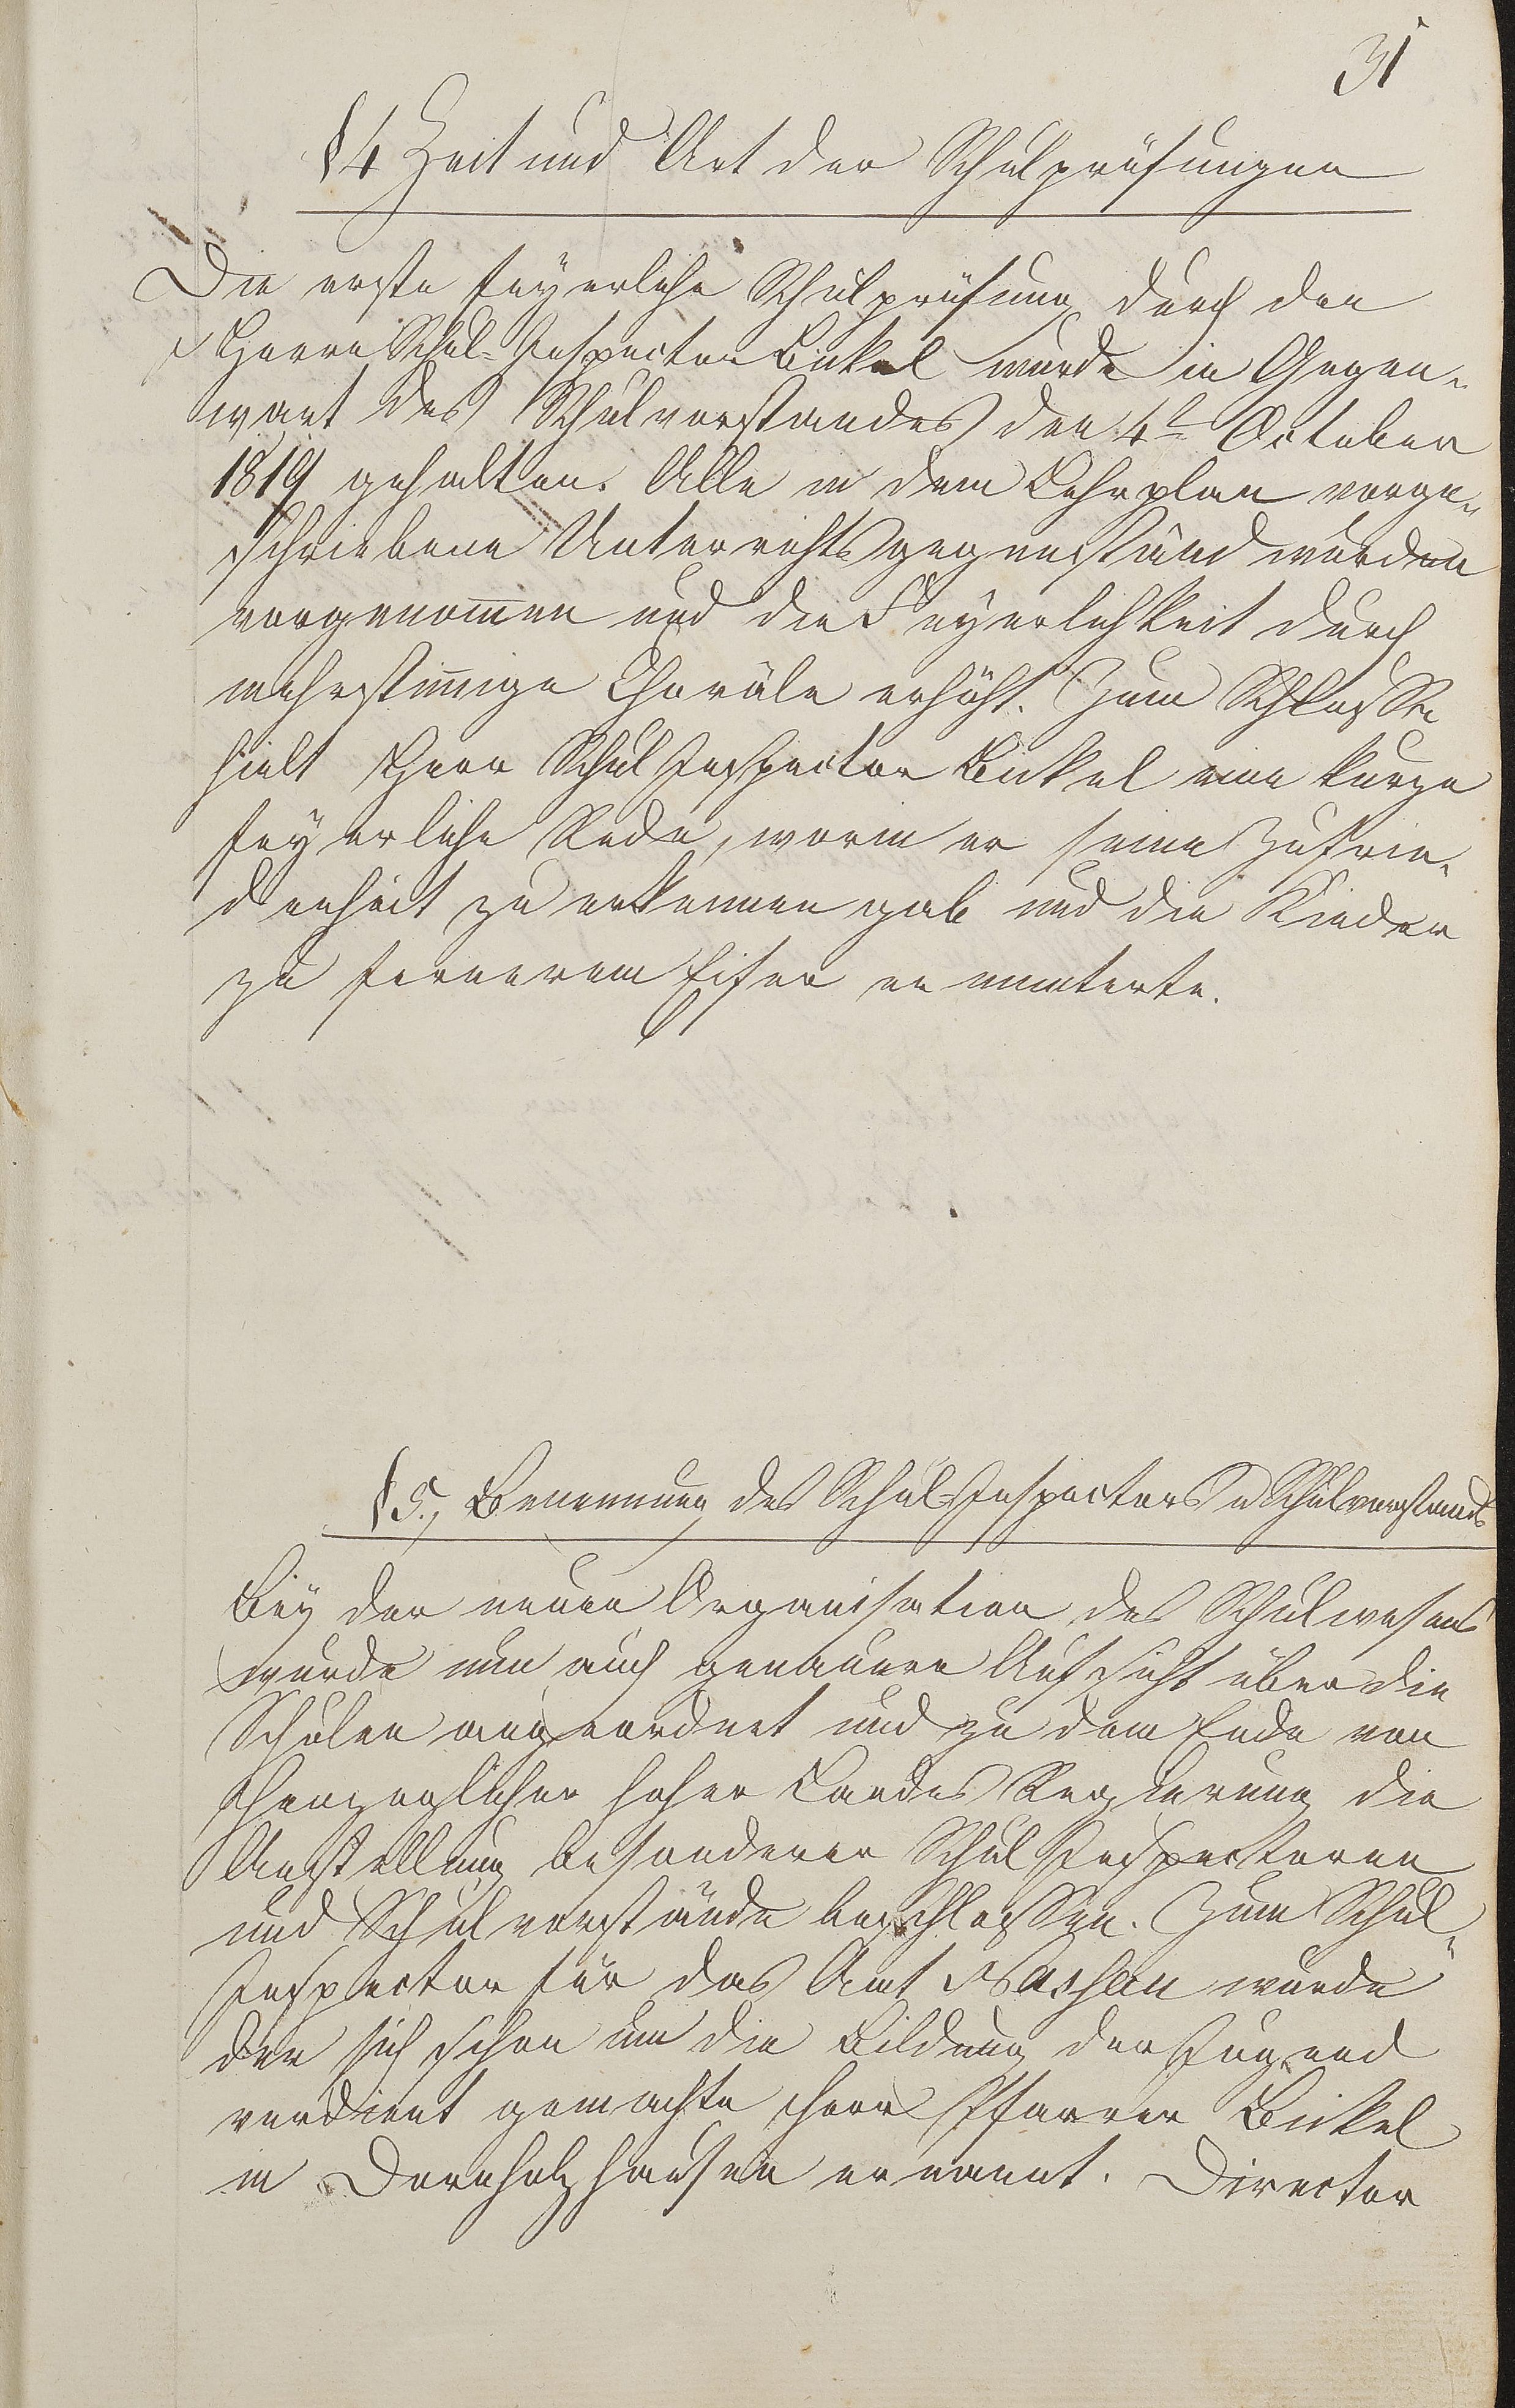 31
§4 Zeit und Art der Schulprüfungen
Die erste feyerliche Schulprüfung durch den
Herrn Schul-Inspector Bickel wurde in Gegen-
wart des Schulvorstandes den 4t October
1819 gehalten. Alle in dem Lehrplan vorge-
schriebene Unterrichtsgegenständ wurden
vorgenom̄en und die Feyerlichkeit durch
mehrstim̄ige Choräle erhöht. Zum Schlusse
hielt Herr Schul Inspector Bickel eine kurze
feyerliche Rede, worin er seine Zufrie-
denheit zu erkennen gab und die Kinder
zu fernerem Eifer ermunterte.
§5., Benennung des Schul-Inspectors u Schulvorstands
Bey der neuen Organisation des Schulwesens
wurde nun auch genauere Aufsicht über die
Schulen angeordnet und zu dem Ende von
Herzoglicher hoher Landes Regierung die
Anstellung besonderer Schul Inspectoren
und Schulvorstände beschlossen. Zum Schul-
Inspector für das Amt Nassau wurde
der sich schon um die Bildung der Jugend
verdient gemachte Herr Pfarrer Bickel
in Dornholzhausen ernannt. Director